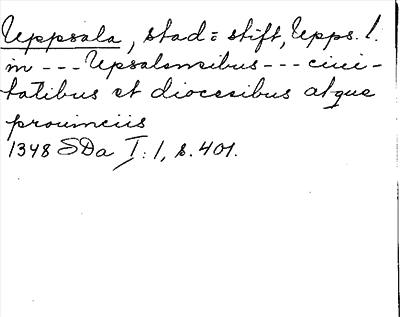 Uppsala, stad= stift, Upps. l.
in --- Upsalensibus --- ciui-
tatibus et diocesibus atque
prouinciis
1348 SDa I: 1, s. 401.